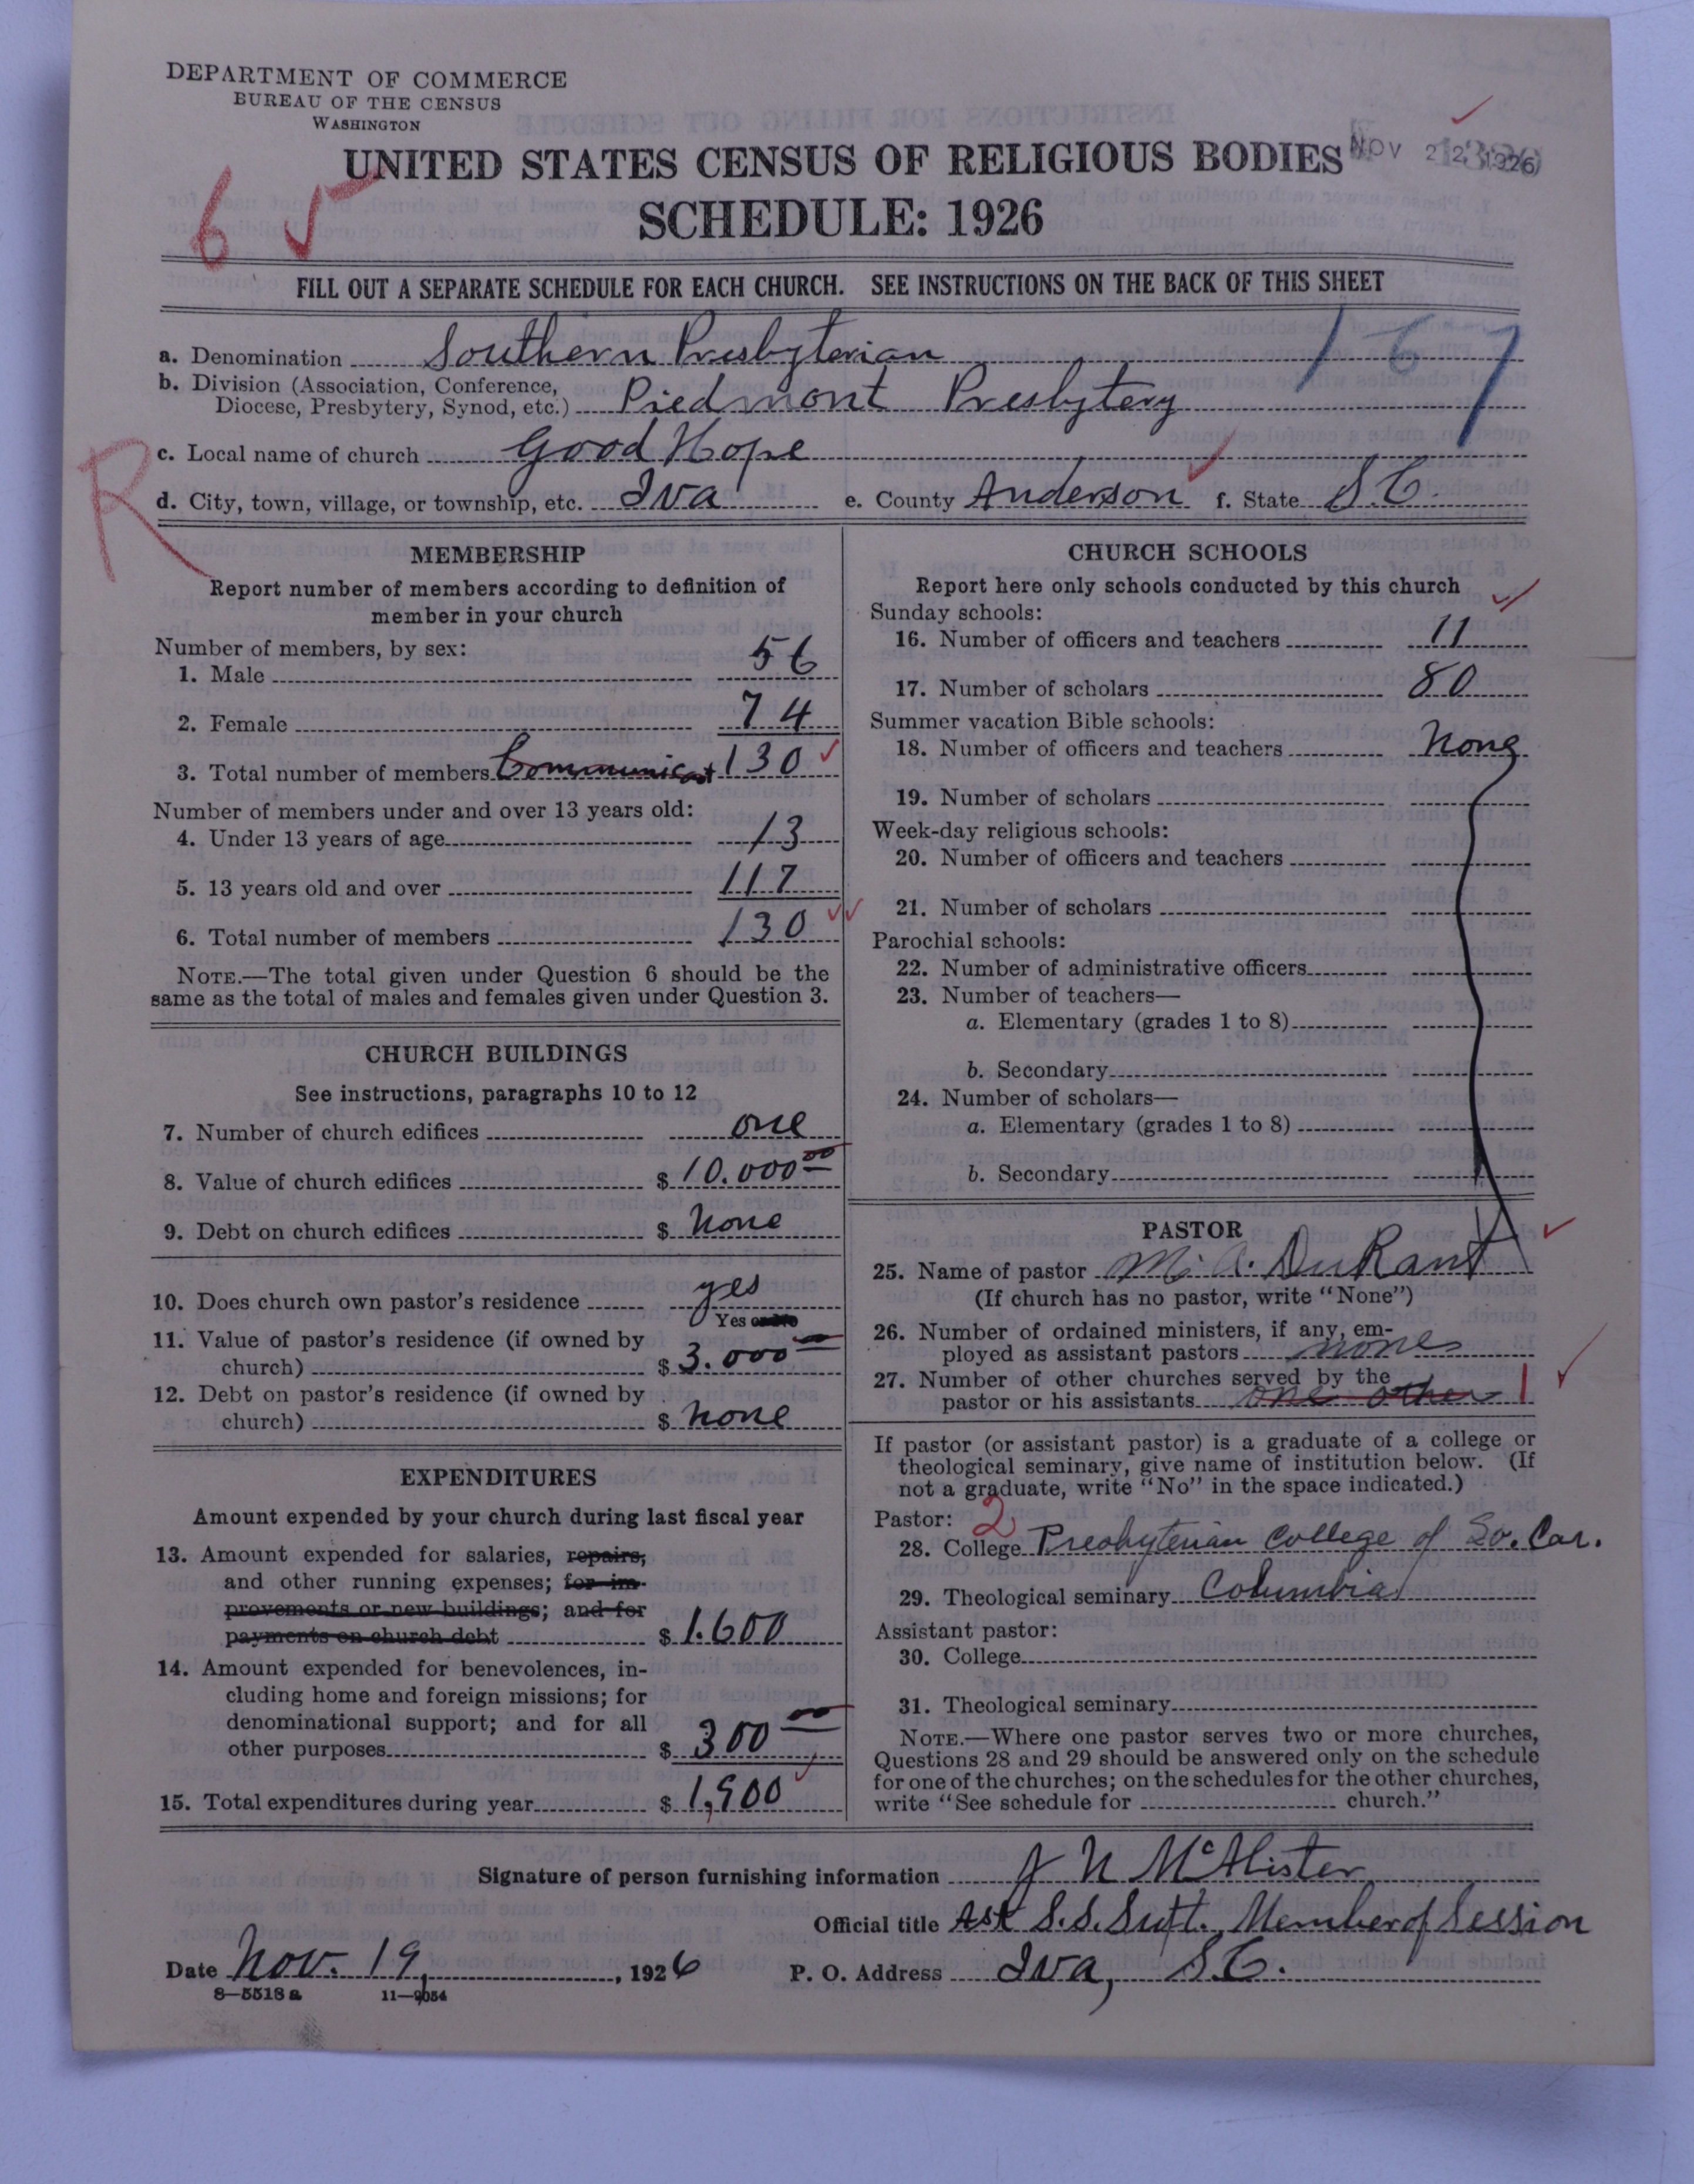 DEPARTMENT OF COMMERCE
BUREAU OF THE CENSUS
WASHINGTON
UNITED STATES CENSUS OF RELIGIOUS BODIES
NOV 22 1926
SCHEDULE: 1926
6
FILL OUT A SEPARATE SCHEDULE FOR EACH CHURCH. SEE INSTRUCTIONS ON THE BACK OF THIS SHEET
167
a. Denomination Southern Presbyterian
b. Division (Association, Conference,
Diocese, Presbytery, Synod, etc.) Piedmont Presbytery
R
c. Local name of church Good Hope
d. City, town, village, or township, etc. Iva e. County Anderson f. State S.C.
MEMBERSHIP
Report number of members according to definition of
member in your church
Number of members, by sex:
1. Male 56
2. Female 74
3. Total number of members Communicant 130
Number of members under and over 13 years old:
4. Under 13 years of age 13
5. 13 years old and over 117
6. Total number of members 130
NOTE.—The total given under Question 6 should be the
same as the total of males and females given under Question 3.
CHURCH BUILDINGS
See instructions, paragraphs 10 to 12
7. Number of church edifices one
8. Value of church edifices $ 10.000 00
9. Debt on church edifices $ None
10. Does church own pastor's residence yes
Yes or No
11. Value of pastor's residence (if owned by
church) $ 3.000
12. Debt on pastor's residence (if owned by
church) $ None
EXPENDITURES
Amount expended by your church during last fiscal year
13. Amount expended for salaries, repairs,
and other running expenses; for im-
provements or new buildings; and for
payments on church debt $ 1.600
14. Amount expended for benevolences, in-
cluding home and foreign missions; for
denominational support; and for all
other purposes $ 300 00
15. Total expenditures during year $ 1,900
CHURCH SCHOOLS
Report here only schools conducted by this church
Sunday schools:
16. Number of officers and teachers 11
17. Number of scholars 80
Summer vacation Bible schools:
18. Number of officers and teachers None
19. Number of scholars
Week-day religious schools:
20. Number of officers and teachers
21. Number of scholars
Parochial schools:
22. Number of administrative officers
23. Number of teachers—
a. Elementary (grades 1 to 8)
b. Secondary
24. Number of scholars—
a. Elementary (grades 1 to 8)
b. Secondary
PASTOR
25. Name of pastor M. A. DuRant
(If church has no pastor, write "None")
26. Number of ordained ministers, if any, em-
ployed as assistant pastors none
27. Number of other churches served by the
pastor or his assistants one other 1
If pastor (or assistant pastor) is a graduate of a college or
theological seminary, give name of institution below. (If
not a graduate, write "No" in the space indicated.)
Pastor: 2
28. College Presbyterian College of So. Car.
29. Theological seminary Columbia
Assistant pastor:
30. College
31. Theological seminary
NOTE.—Where one pastor serves two or more churches,
Questions 28 and 29 should be answered only on the schedule
for one of the churches; on the schedules for the other churches,
write "See schedule for church."
Signature of person furnishing information J N McAlister
Official title Ast S.S. Supt. Member of Session
Date Nov. 19, 1926 P. O. Address Iva, S.C.
8—5518a 11—9054